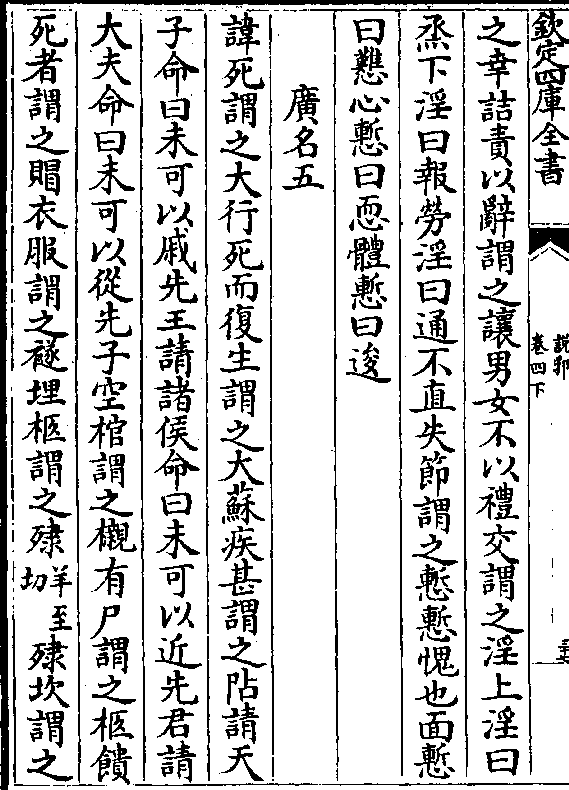 欽定四庫全書
說郛
卷四下
之幸詰責以辭謂之讓男女不以禮交謂之淫上淫曰
烝下淫曰報旁淫曰通不直失節謂之慙慙愧也面慙
曰戁心慙曰恧體慙曰逡
廣名五
諱死謂之大行死而復生謂之大蘇疾甚謂之阽請天
子命曰未可以戚先王請諸侯命曰未可以近先君請
大夫命曰未可以從先子空棺謂之櫬有尸謂之柩饋
死者謂之賵衣服謂之襚埋柩謂之殔羊至切殔坎謂之